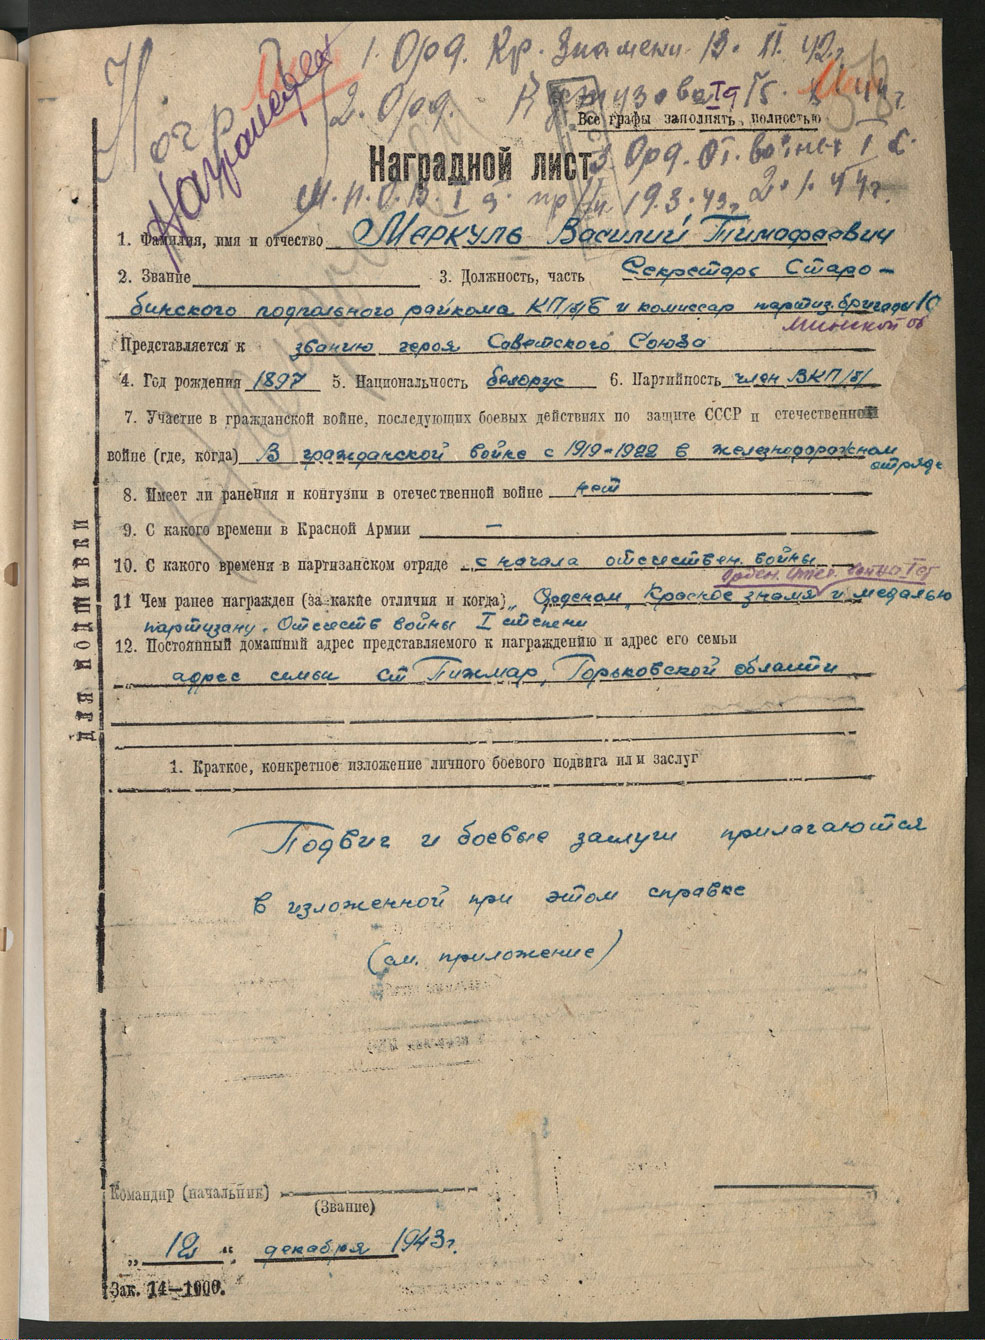 1. Орд. Кр. Знамени 13. II. 42г.
Награжден
2. Орд. Кутузова I ст.
Все графы заполнять полностью
Наградной лист
3. Орд. От. войны I с.
М.П.О.В. I ст. пр. 19.3.43г. 2.1.44г.
1. Фамилия, имя и отчество Меркуль Василий Тимофеевич
2. Звание 3. Должность, часть Секретарь Старо-
бинского подпольного райкома КП/б/Б и комиссар партиз. бригады
Минской об
Представляется к званию героя Советского Союза
4. Год рождения 1897 5. Национальность белорус 6. Партийность член ВКП/б/
7. Участие в гражданской войне, последующих боевых действиях по защите СССР и отечественной
войне (где, когда) В гражданской войне с 1919-1922 в железнодорожном
отряде
8. Имеет ли ранения и контузии в отечественной войне нет
9. С какого времени в Красной Армии —
10. С какого времени в партизанском отряде с начала отечествен. войны
Орден. Отеч. войны I ст
11 Чем ранее награжден (за какие отличия и когда) Орденом „Красное знамя и медалью
партизану. Отечеств войны I степени
12. Постоянный домашний адрес представляемого к награждению и адрес его семьи
адрес семьи ст Пижмар, Горьковской области
ДЛЯ ПОДШИВКИ
1. Краткое, конкретное изложение личного боевого подвига или заслуг
Подвиг и боевые заслуги прилагаются
в изложенной при этом справке
(см. приложение)
Командир (начальник)
(Звание)
„12“ декабря 1943г.
Зак. 14—1000.